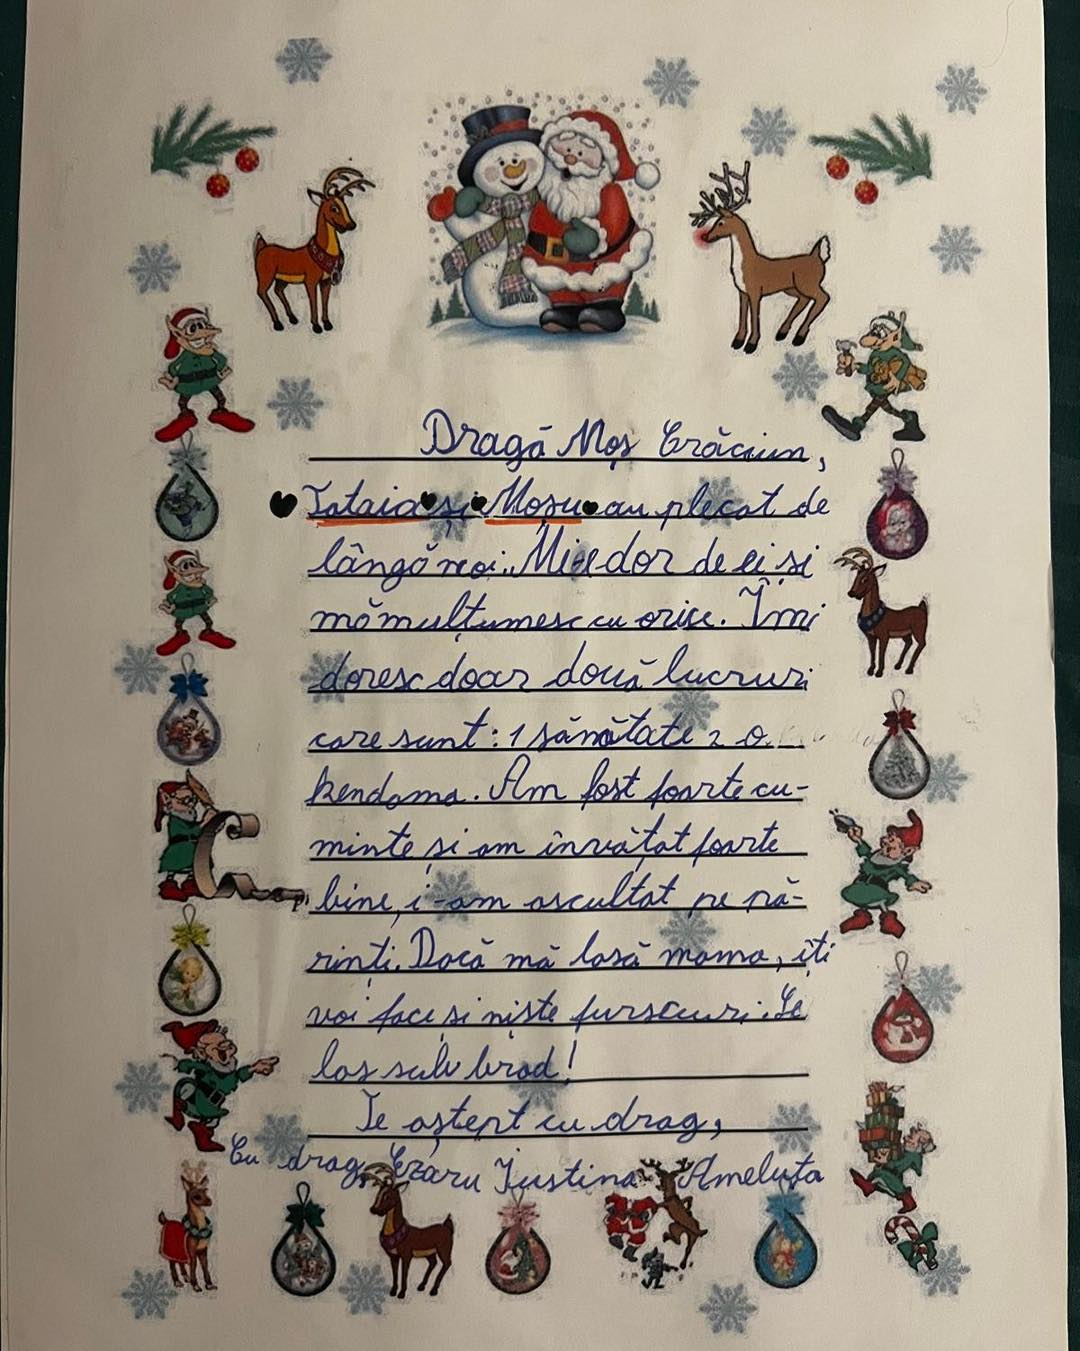 Dragă Moș Crăciun,
Tataia și Moșu au plecat de
lângă noi. Mi-e dor de ei și
mă mulțumesc cu orice. Îmi
doresc doar două lucruri
care sunt: 1 sănătate 2 o
kendama. Am fost foarte cu-
minte și am învățat foarte
bine, i-am ascultat pe pă-
rinți. Dacă mă lasă mama, îți
voi face și niște fursecuri. Le
las sub brad!
Te aștept cu drag,
Cu drag, Ezaru Iustina Ameluța